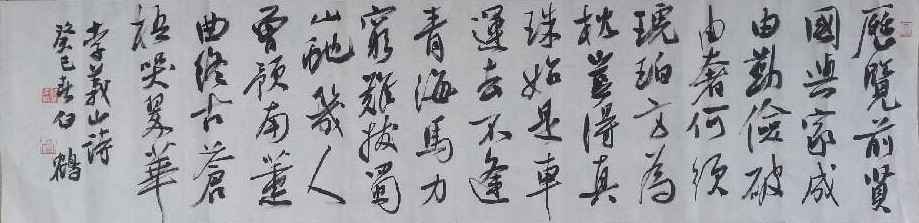 歷覽前賢
國與家成
由勤儉破
由奢何須
琥珀方為
枕豈得真
珠始是車
運去不逢
青海馬力
窮難拔蜀
山虵幾人
曾預南薰
曲終古蒼
梧哭翠華
李義山詩
癸巳春白鶴